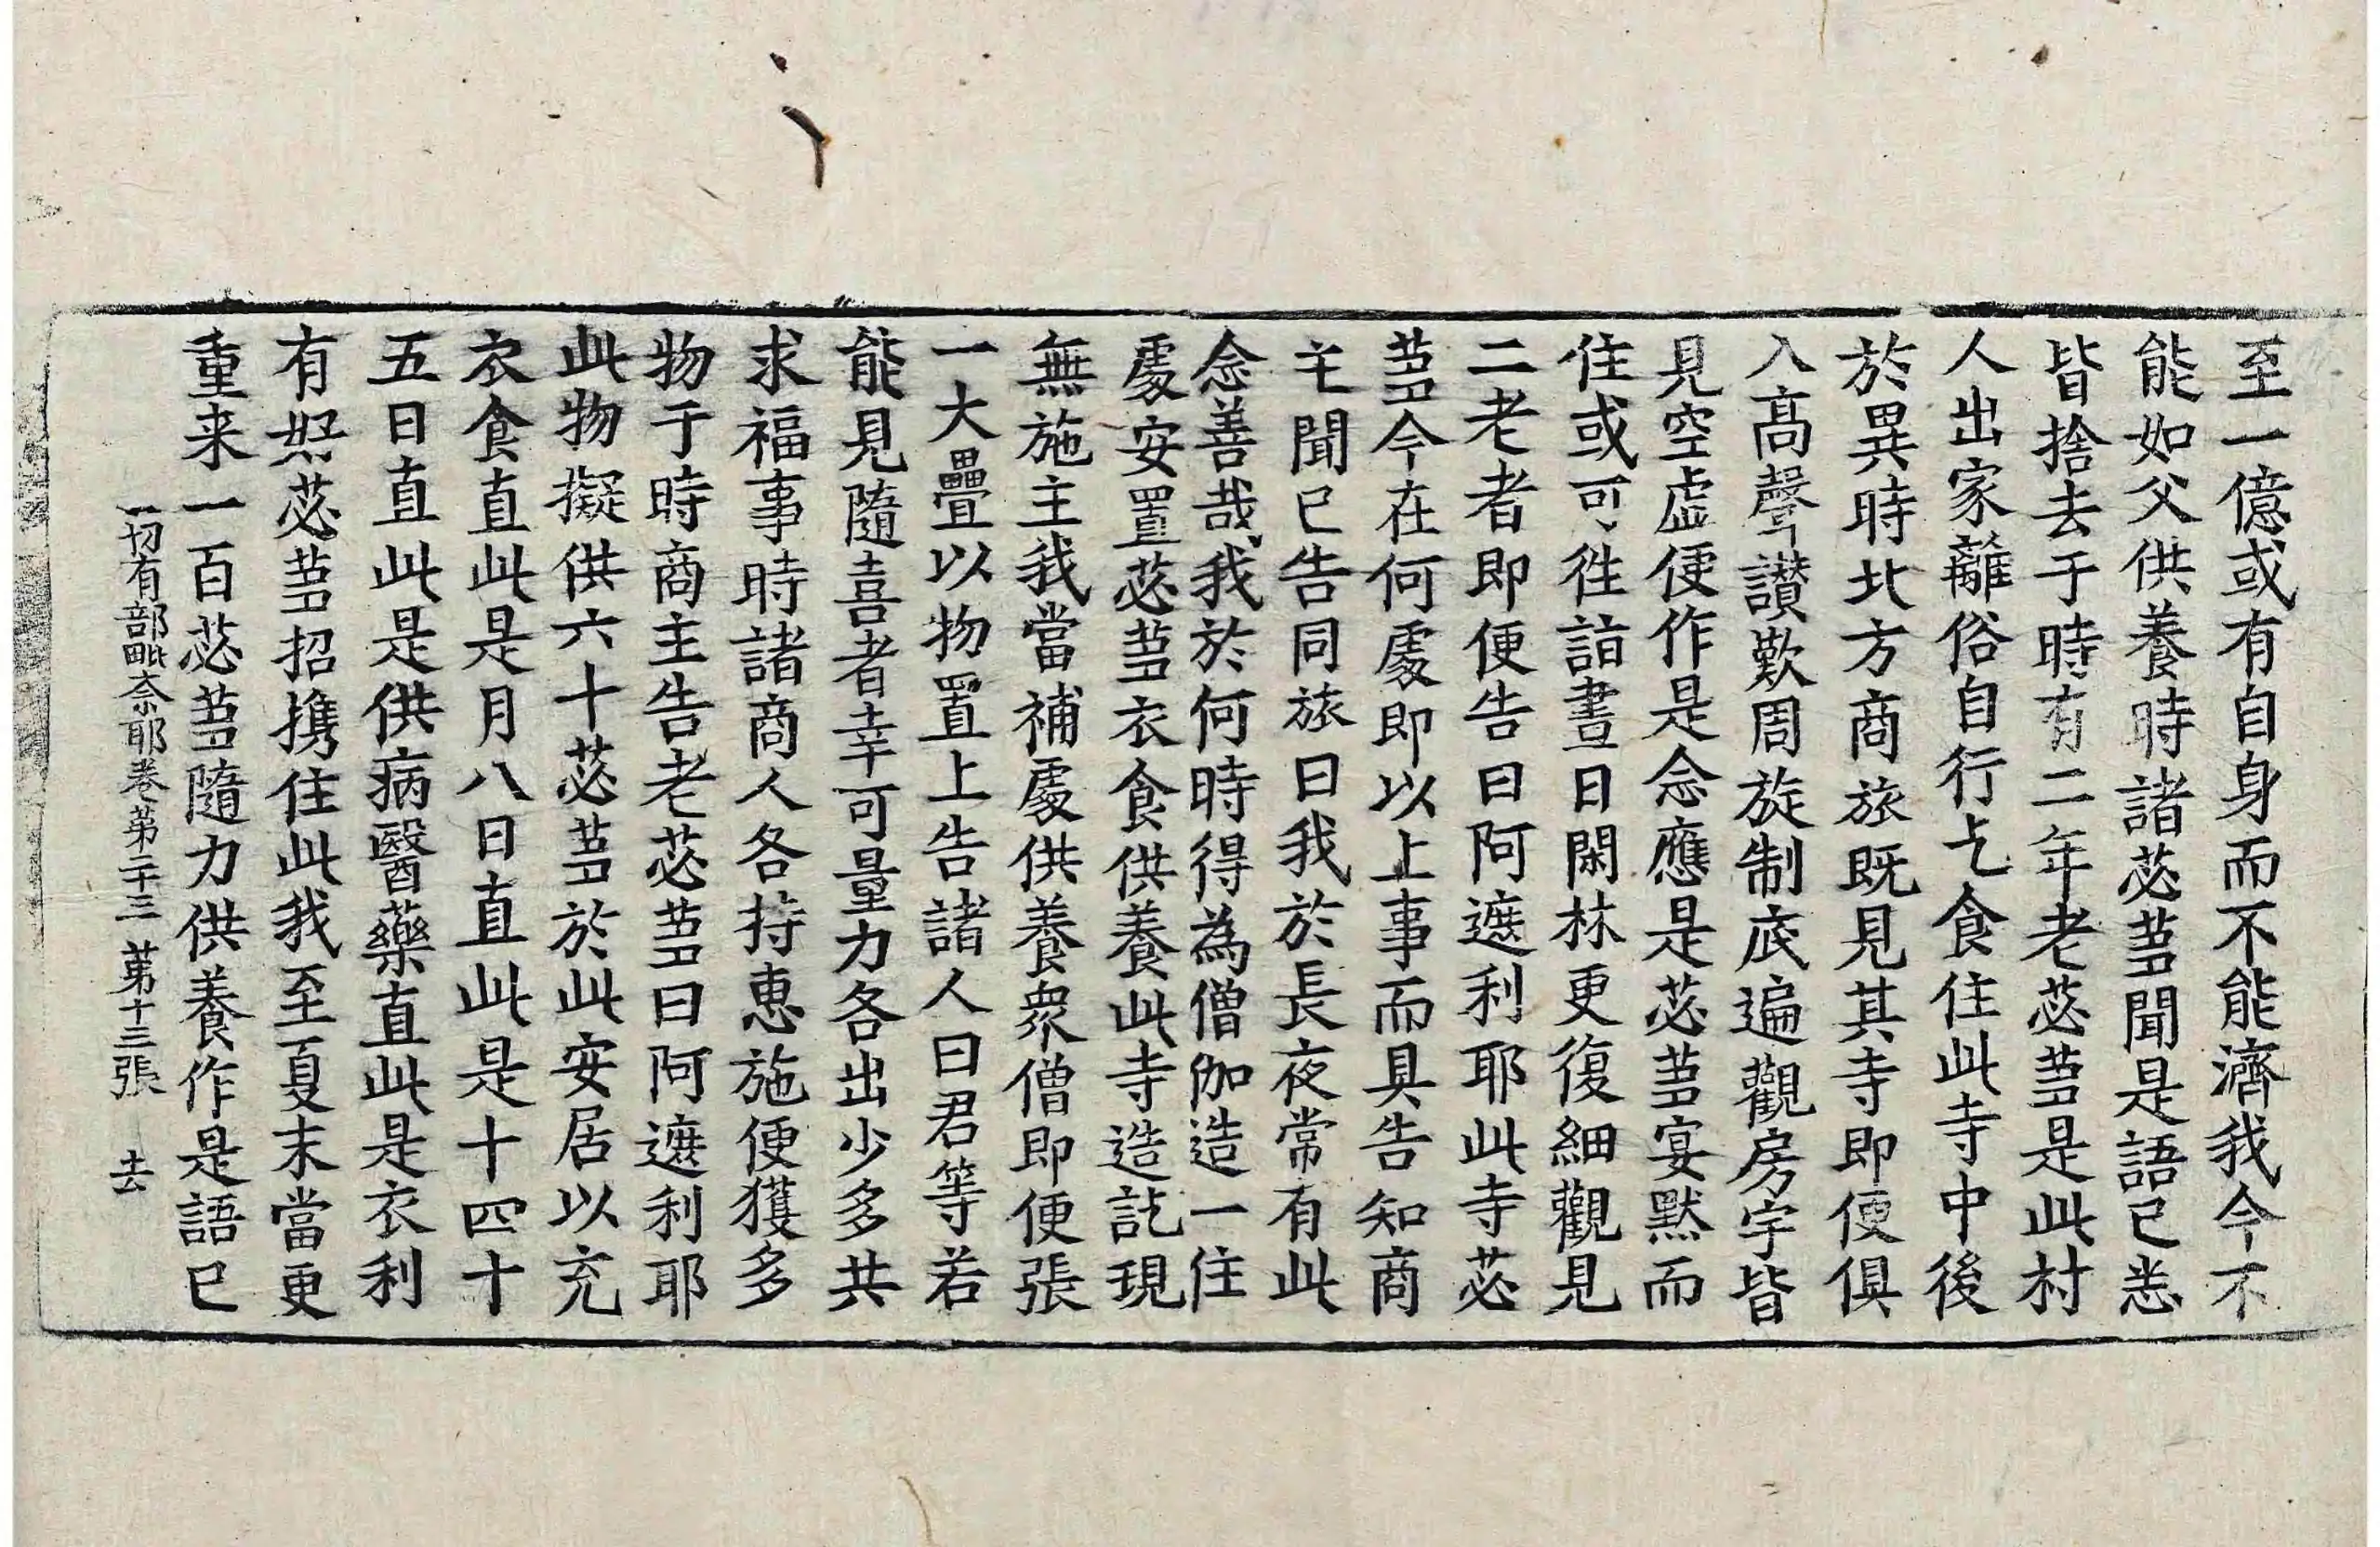 至一億或有自身而不能濟我今不
能如父供養時諸苾蒭聞是語已悉
皆捨去于時有二年老苾蒭是此村
人出家離俗自行乞食住此寺中後
於異時北方商旅既見其寺即便俱
入高聲讃歎周旋制底遍觀房宇皆
見空虛便作是念應是苾蒭宴默而
住或可往詣晝日閑林更復細觀見
二老者即便告曰阿遮利耶此寺苾
蒭今在何處即以上事而具告知商
主聞已告同旅曰我於長夜常有此
念善哉我於何時得為僧伽造一住
處安置苾蒭衣食供養此寺造訖現
無施主我當補處供養衆僧即便張
一大疊以物置上告諸人曰君等若
能見隨喜者幸可量力各出少多共
求福事時諸商人各持惠施便獲多
物于時商主告老苾蒭曰阿遮利耶
此物擬供六十苾蒭於此安居以充
衣食直此是月八日直此是十四十
五日直此是供病醫藥直此是衣利
有好苾蒭招携住此我至夏末當更
重来一百苾蒭隨力供養作是語已
一切有部毗奈耶卷第二十三 第十三張 去